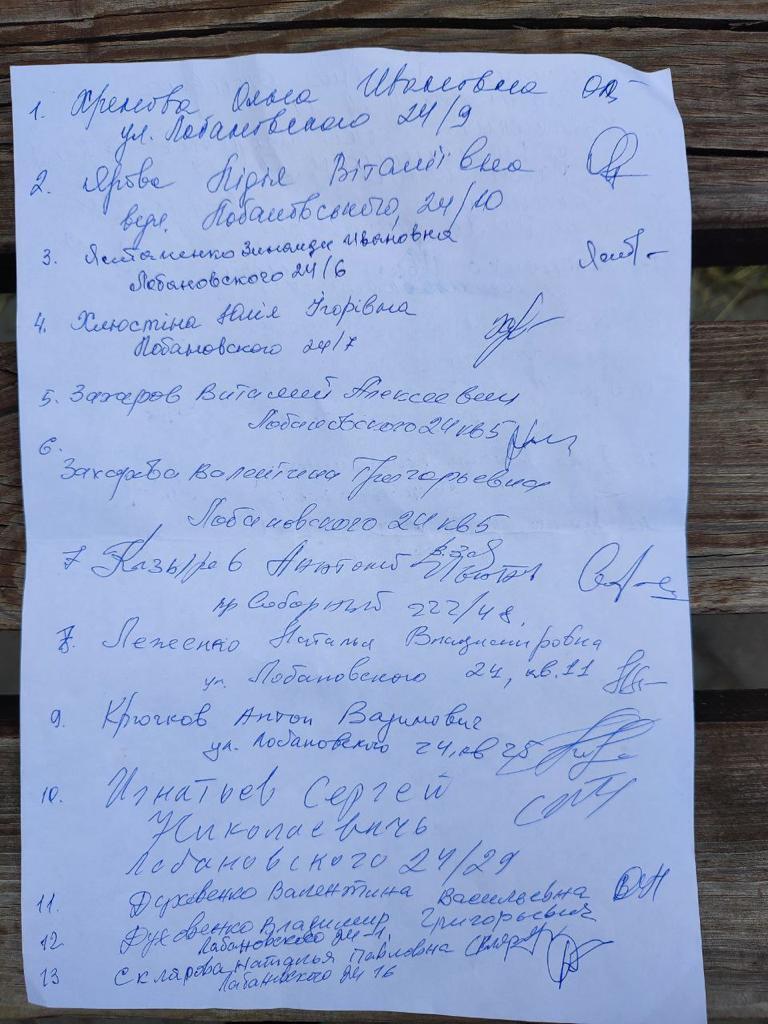 1. Хренова Ольга Ивановна
ул. Лобановского 24/9
2. Ярова Лідія Віталіївна
вул. Лобановського, 24/10
3. Зинаида Ивановна
Лобановского 24/6
4. Хлюстіна Юлія Ігорівна
Лобановского 24/7
5. Захаров Виталий Алексеевич
Лобановского 24 кв 5
6.
Захарова Валентина Григорьевна
Лобановского 24 кв 5
7 Казырев Анатолий
пр Соборный 222/48.
8. Леженко Наталья Владимировна
ул. Лобановского 24, кв. 11
9. Крючков Антон Вадимович
ул. Лобановского 24, кв 25
10. Игнатьев Сергей
Николаевичь
Лобановского 24/29
11. Духовенко Валентина Васильевна
12 Духовенко Владимир Григорьевич
Лобановского 24
13 Склярова Наталья Павловна
Лобановского 24 16